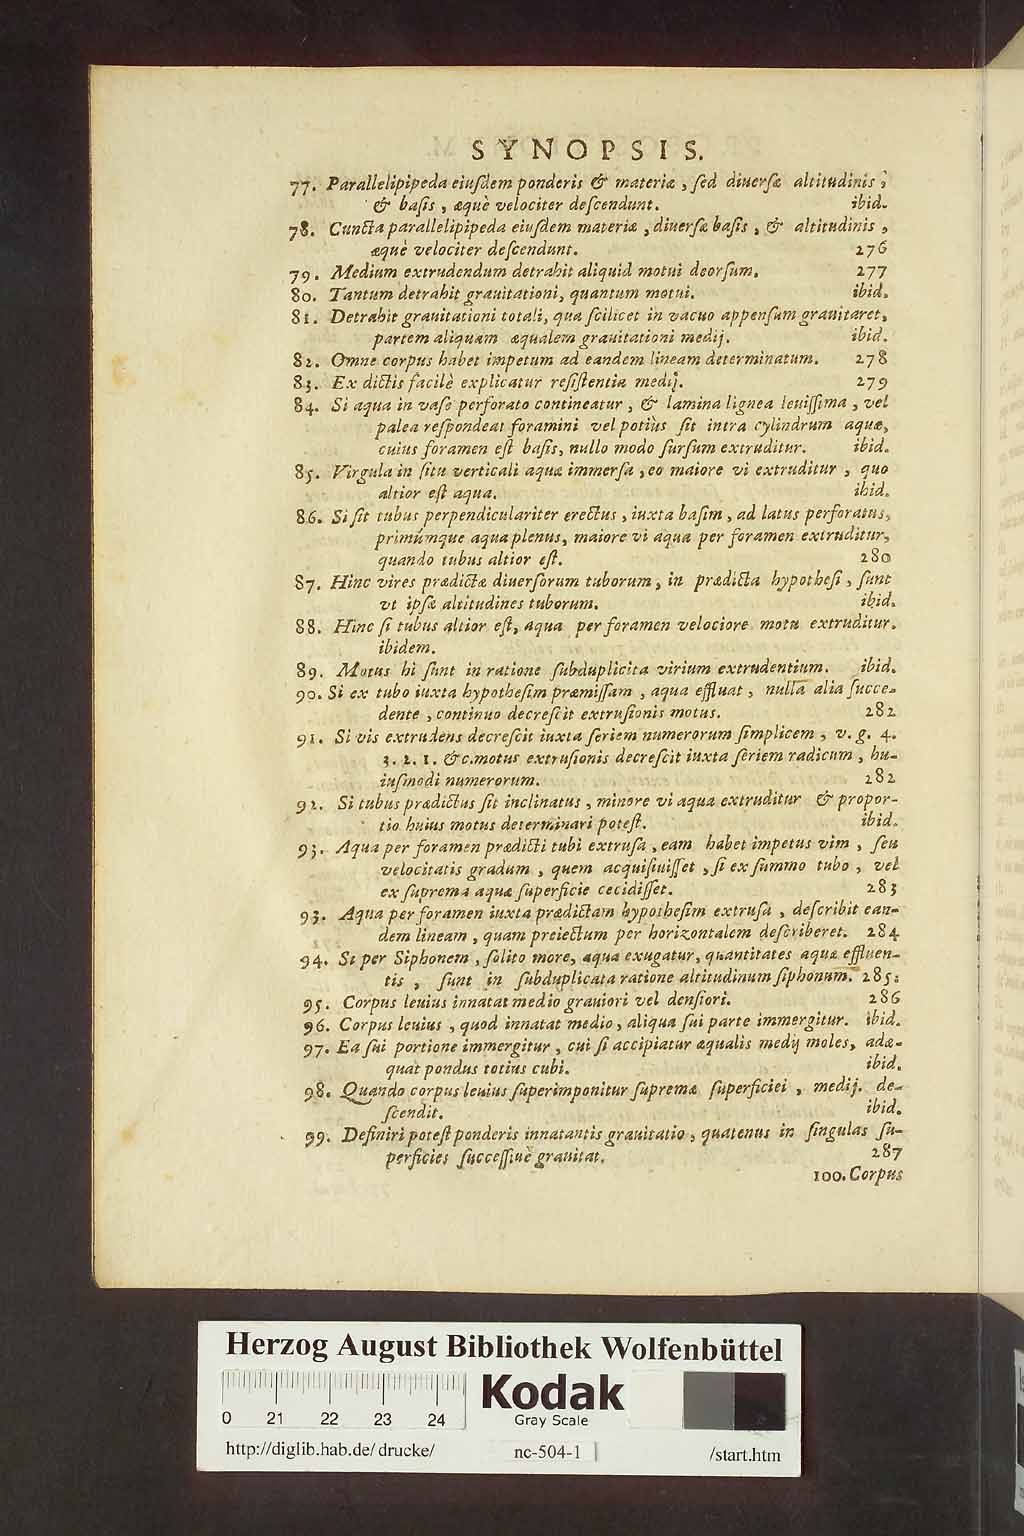 SYNOPSIS.
77. Parallelipipeda eiuſdem ponderis & materiæ, ſed diuerſæ altitudinis,
& baſis, æquè velociter deſcendunt. ibid.
78. Cuncta parallelipipeda eiuſdem materiæ, diuerſæ baſis, & altitudinis,
æquè velociter deſcendunt. 276
79. Medium extrudendum detrahit aliquid motui deorſum. 277
80. Tantum detrahit grauitationi, quantum motui. ibid.
81. Detrahit grauitationi totali, qua ſcilicet in vacuo appenſum grauitaret,
partem aliquam æqualem grauitationi medij. ibid.
82. Omne corpus habet impetum ad eandem lineam determinatum. 278
83. Ex dictis facilè explicatur reſiſtentia medij. 279
84. Si aqua in vaſe perforato contineatur, & lamina lignea leuiſſima, vel
palea reſpondeat foramini vel potiùs ſit intra cylindrum aquæ,
cuius foramen eſt baſis, nullo modo ſurſum extruditur. ibid.
85. Virgula in ſitu verticali aquæ immerſa, eo maiore vi extruditur, quo
altior eſt aqua. ibid.
86. Si ſit tubus perpendiculariter erectus, iuxta baſim, ad latus perforatus,
primúmque aqua plenus, maiore vi aqua per foramen extruditur,
quando tubus altior eſt. 280
87. Hinc vires prædictæ diuerſorum tuborum, in prædicta hypotheſi, ſunt
vt ipſæ altitudines tuborum. ibid.
88. Hinc ſi tubus altior eſt, aqua per foramen velociore motu extruditur.
ibidem.
89. Motus hi ſunt in ratione ſubduplicita virium extrudentium. ibid.
90. Si ex tubo iuxta hypotheſim præmiſſam, aqua effluat, nulla alia ſucce-
dente, continuo decreſcit extruſionis motus. 282
91. Si vis extrudens decreſcit iuxta ſeriem numerorum ſimplicem, v. g. 4.
3. 2. 1. &c. motus extruſionis decreſcit iuxta ſeriem radicum, hu-
iuſmodi numerorum. 282
92. Si tubus prædictus ſit inclinatus, minore vi aqua extruditur & propor-
tio huius motus determinari poteſt. ibid.
93. Aqua per foramen prædicti tubi extruſa, eam habet impetus vim, ſeu
velocitatis gradum, quem acquiſiuiſſet, ſi ex ſummo tubo, vel
ex ſuprema aquæ ſuperficie cecidiſſet. 283
93. Aqua per foramen iuxta prædictam hypotheſim extruſa, deſcribit ean-
dem lineam, quam preiectum per horizontalem deſcriberet. 284
94. Si per Siphonem, ſolito more, aqua exugatur, quantitates aquæ effluen-
tis, ſunt in ſubduplicata ratione altitudinum ſiphonum. 285.
95. Corpus leuius innatat medio grauiori vel denſiori. 286
96. Corpus leuius, quod innatat medio, aliqua ſui parte immergitur. ibid.
97. Ea ſui portione immergitur, cui ſi accipiatur æqualis medij moles, adæ-
quat pondus totius cubi. ibid.
98. Quando corpus leuius ſuperimponitur ſupremæ ſuperficiei, medij. de-
ſcendit. ibid.
99. Definiri poteſt ponderis innatantis grauitatio, quatenus in ſingulas ſu-
perficies ſucceſſiuè grauitat. 287
100. Corpus
Herzog August Bibliothek Wolfenbüttel
0 21 22 23 24
Kodak
Gray Scale
http://diglib.hab.de/drucke/ nc-504-1 /start.htm